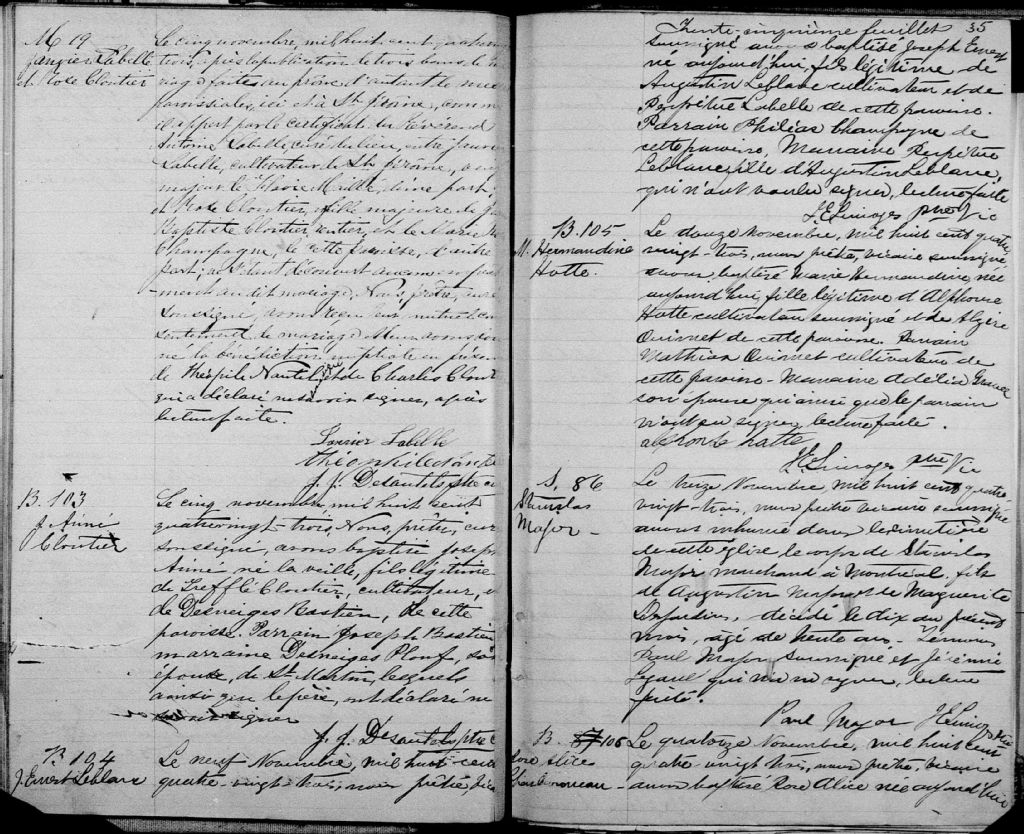 M 19
Janvier Labelle
et Rose Cloutier
Le cinq novembre, mil huit cent quatre vingt
trois, après la publication de trois bans de
mariage faites au prône de nos messes
paroissiales, ici et à St Jérome, comme
il appert par le certificat du Révérend
Antoine Labelle, curé du lieu, entre Janvier
Labelle, cultivateur de St Jérôme,
majeur de d'une part
et Rose Cloutier, fille majeure de Jean
Baptiste Cloutier, et de Marie
Champagne, de cette paroisse, d'autre
part; ne s'étant découvert aucun empêche-
ment au dit mariage, Nous, prêtre, curé
soussigné, avons reçu leur mutuel con
sentement de mariage et leur avons don
né la bénédiction nuptiale en présence
de Théophile Nantel et de Charles Clout
qui a déclaré ne savoir signer, après
lecture faite.
Janvier Labelle
théophile Nantel
J. J. Desautels ptre cu
B. 103
J. Aimé
Cloutier
Le cinq novembre mil huit cent
quatrevingt-trois, Nous, prêtre, curé
soussigné, avons baptisé Joseph
Aimé né la veille, fils légitime
de Trefflé Cloutier, cultivateur, et
de Desneiges Bastien, de cette
paroisse. Parrain Joseph Bastien
marraine Desneiges Plouf, son
épouse, de St Martin, lesquels
ainsi que le père, ont déclaré ne
savoir signer
J. J. Desautels ptre c
B 104
J. Ernest Leblanc
Le neuf Novembre, mil huit cent
quatre-vingt-trois, nous prêtre, vic
35
Trente-cinquième feuillet
soussigné avons baptisé Joseph Ernest
né aujourd'hui, fils légitime de
Augustin Leblanc cultivateur et de
Perpétue Labelle de cette paroisse.
Parrain Philéas Champagne de
cette paroisse, Marraine Perpétue
Leblanc fille d'Augustin Leblanc,
qui n'ont voulu signer, lecture faite
J E Limoges ptre Vic
B. 105
M. Hermandine
Hotte.
Le douze Novembre, mil huit cent quatre
vingt-trois, nous prêtre, vicaire soussigné
avons baptisé Marie Hermandine, née
aujourd'hui, fille légitime d'Alphonse
Hotte cultivateur soussigné et de Algire
Ouimet de cette paroisse. Parrain
Mathias Ouimet cultivateur de
cette paroisse - Marraine Adélia
son épouse qui ainsi que le parrain
n'ont su signer, lecture faite.
alphonse hatte
J E Limoges ptre Vic
S. 86
Stanislas
Major -
Le treize Novembre, mil huit cent quatre
vingt-trois, nous prêtre vicaire soussigné
avons inhumé dans le cimetière
de cette église le corps de Stanislas
Major marchand à Montréal. fils
de Augustin Major et de Marguerite
Desjardins, décédé le dix du présent
mois, agé de trente ans - Témoins
Paul Major soussigné et Jérémie
Legault qui n'a su signer, lecture
faite.
Paul Major J E Limoges Vic
B. 106
Rose Alice
Charbonneau -
Le quatorze Novembre, mil huit cent
quatre vingt trois, nous prêtre, vicaire
avons baptisé Rose Alice née aujourd'hui